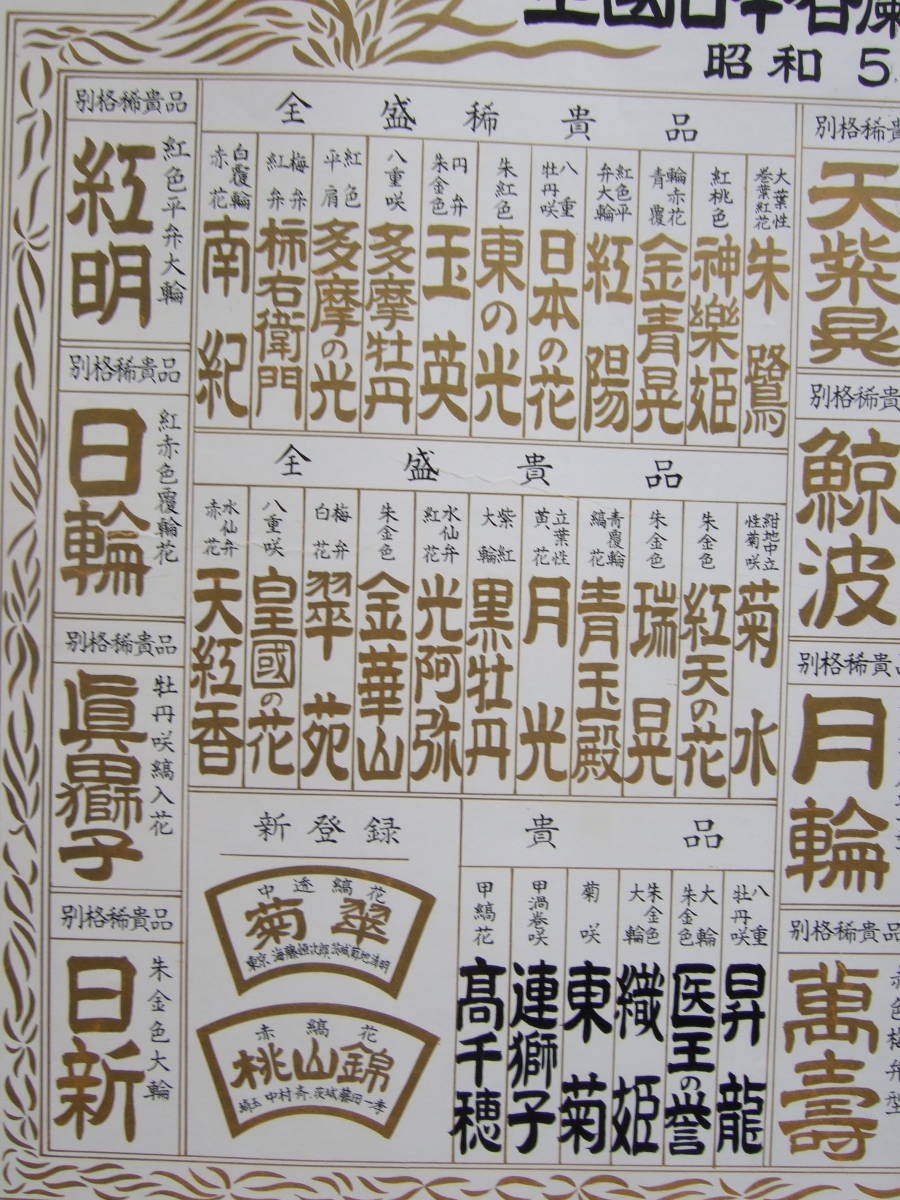 昭和5
別格稀貴品
天紫晃
別格稀貴
鯨波
別格稀貴品
月輪
別格稀貴品
赤色梅弁型
萬壽
全盛稀貴品
大葉性巻葉紅花
朱鷺
紅桃色
神樂姫
輪赤花青覆
金青晃
紅色平弁大輪
紅陽
八重牡丹咲
日本の花
朱紅色
東の光
円弁朱金色
玉英
八重咲
多摩牡丹
紅色平肩
多摩の光
梅弁紅弁
柿右衛門
白覆輪赤花
南紀
全盛貴品
紺地中立性菊咲
菊水
朱金色
紅天の花
朱金色
瑞晃
青覆輪縞花
青玉殿
立葉性黄花
月光
紫紅大輪
黒牡丹
水仙弁紅花
光阿弥
朱金色
金華山
梅弁白花
翠苑
八重咲
皇國の花
水仙弁赤花
天紅香
貴品
八重牡丹咲
昇龍
大輪朱金色
医王の誉
朱金色大輪
織姫
菊咲
東菊
甲渦巻咲
連獅子
甲縞花
高千穂
新登録
中透縞花
菊翠
赤縞花
桃山錦
埼玉 中村斉、茨城 藤田一孝
別格稀貴品
紅色平弁大輪
紅明
別格稀貴品
紅赤色覆輪花
日輪
別格稀貴品
牡丹咲縞入花
眞田獅子
別格稀貴品
朱金色大輪
日新